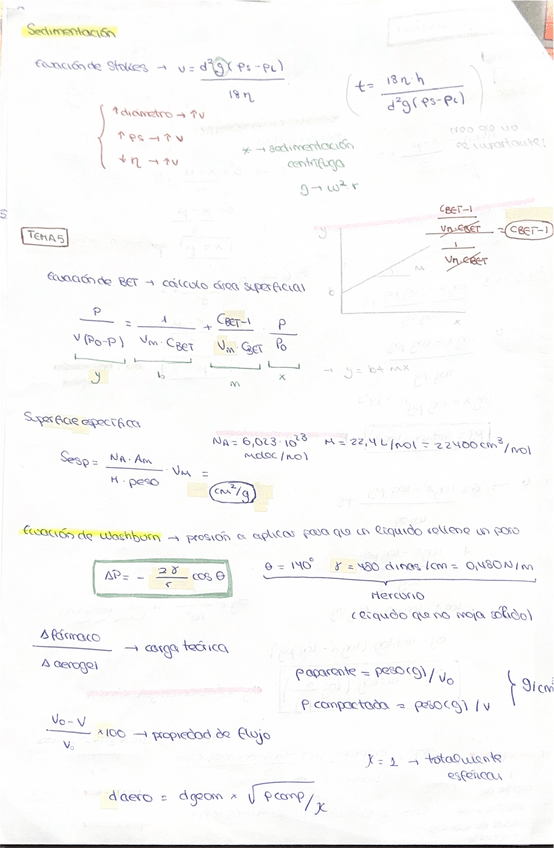 Sedimentación
Ecuación de Stokes → v = d²g(ρs-ρL) / 18η
(t = 18η·h / d²g(ρs-ρL))
↑diametro → ↑v
↑ρs → ↑v
↓η → ↑v
* → sedimentación
centrífuga
g → ω²r
TEMA 5
y
b
M
x
(CBET-1 / Vm·CBET) / (1 / Vm·CBET) = CBET-1
Ecuación de BET → cálculo área superficial
P / V(P0-P) = 1 / Vm·CBET + CBET-1 / Vm·CBET · P / P0
y b m x → y = b+mx
Superficie específica
NA = 6,023·10²³ M = 22,4 L/mol = 22400 cm³/mol
molec/mol
Sesp = NA·Am / M·peso · VM =
cm²/g
Ecuación de Washburn → presión a aplicar para que un líquido rellene un poro
ΔP = - 2γ / r cos θ
θ = 140° γ = 480 dinas/cm = 0,480 N/m
Mercurio
(líquido que no moja sólido)
Δ fármaco / Δ aerogel → carga teórica
ρ aparente = peso(g)/V0
ρ compactada = peso(g)/V
g/cm
V0-V / V0 ×100 → propiedad de flujo
χ = 1 → totalmente
esféricas
daero = dgeom × √ρcomp/χ